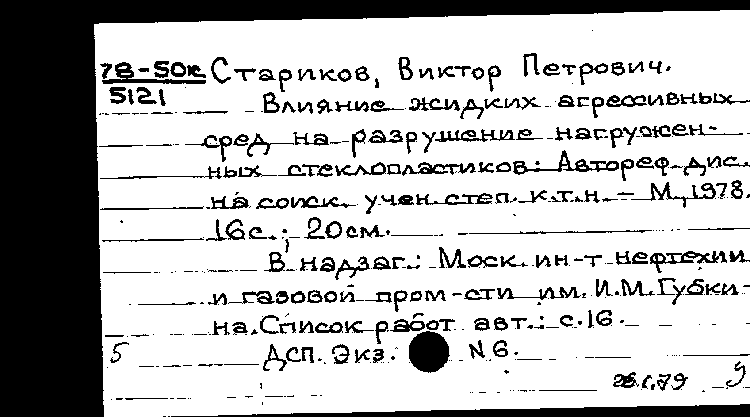 78-50к Стариков, Виктор Петрович.
5121 Влияние жидких агрессивных
сред на разрушение нагружен-
ных стеклопластиков: Автореф. дис.
на соиск. учен. степ. к.т.н. – М., 1978.
16с.; 20см.
В надзаг.: Моск. ин-т нефтехим
и газовой пром-сти им. И.М.Губки-
на. Список работ авт.: с.16.
5 ДСП. Экз. N 6.
79